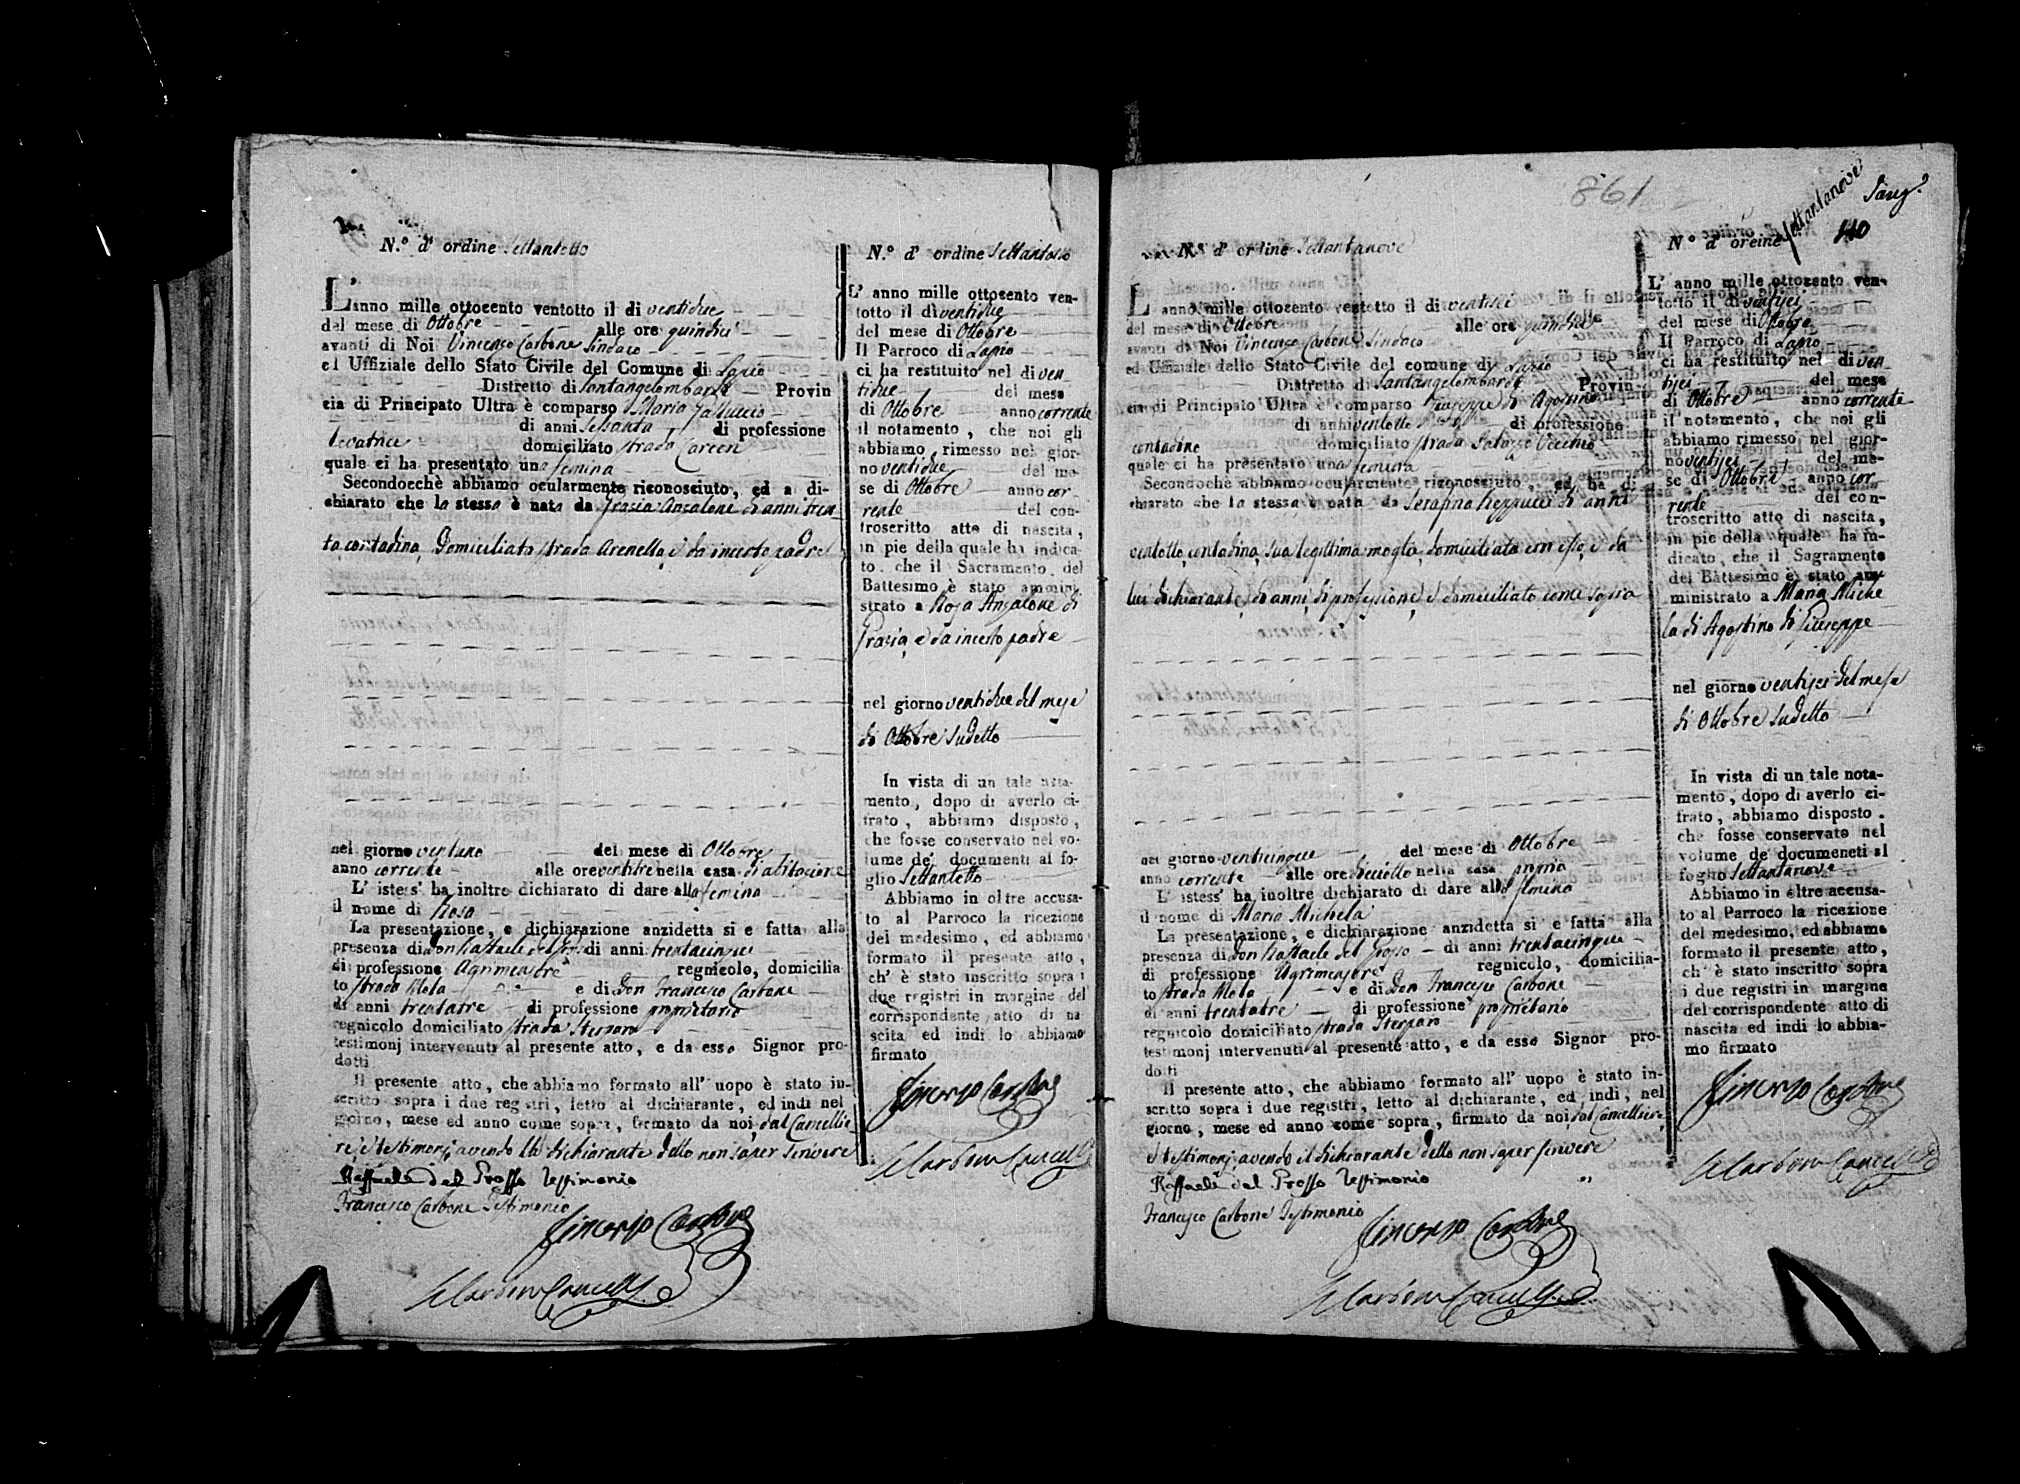 N.º d' ordine Settantotto
L'anno mille ottocento ventotto il di ventidue
del mese di Ottobre alle ore quindici
avanti di Noi Vincenzo Carbone Sindaco
ed Uffiziale dello Stato Civile del Comune di Lapio
Distretto di Santangelombardi Provin
cia di Principato Ultra è comparso Maria
di anni Sessanta di professione
Levatrice domiciliato strada Carcen
quale ci ha presentato una femina
Secondocchè abbiamo ocularmente riconosciuto, ed a di-
chiarato che la stessa è nata da Grazia Anzalone di anni tren-
ta, contadina, Domiciliata strada Arenella, e da incerto padre
nel giorno ventuno del mese di Ottobre
anno corrente alle ore ventitre nella casa di abitazione
L' istess' ha inoltre dichiarato di dare alla femina
il nome di Rosa
La presentazione, e dichiarazione anzidetta si e fatta alla
presenza di Don Raffaele del Grosso di anni trentacinque
di professione Agrimensore regnicolo, domicilia
to strada Mela e di Don Francesco Carbone
di anni trentatre di professione proprietario
regnicolo domiciliato strada Sterparo
testimonj intervenuti al presente atto, e da esso Signor pro-
dotti
Il presente atto, che abbiamo formato all' uopo è stato in-
scritto sopra i due registri, letto al dichiarante, ed indi nel
giorno, mese ed anno come sopra, firmato da noi, dal Cancellie-
re, e testimonj, avendo la dichiarante detto non saper scrivere
Raffaele del Grosso Testimonio
Francesco Carbone Testimonio
Vincenzo Carbone
N.º d' ordine Settantotto
L' anno mille ottocento ven-
totto il di ventidue
del mese di Ottobre
Il Parroco di Lapio
ci ha restituito nel di ven
tidue del mese
di Ottobre anno corrente
il notamento, che noi gli
abbiamo rimesso nel gior-
no ventidue del me-
se di Ottobre anno cor
rente del con-
troscritto atto di nascita,
in pie della quale ha indica-
to, che il Sacramento del
Battesimo è stato ammini-
strato a Rosa Anzalone di
Grazia, e da incerto padre
nel giorno ventidue del mese
di Ottobre Sudetto
In vista di un tale nota-
mento, dopo di averlo ci-
frato, abbiamo disposto,
che fosse conservato nel vo-
lume de' documenti al fo-
glio Settantotto
Abbiamo in oltre accusa-
to al Parroco la ricezione
del medesimo, ed abbiamo
formato il presente atto,
ch' è stato inscritto sopra i
due registri in margine del
corrispondente atto di na
scita ed indi lo abbiamo
firmato
Vincenzo Carbone
861
N.º d' ordine Settantanove
L' anno mille ottocento ventotto il di ventisei
del mese di Ottobre alle ore quindici
avanti di Noi Vincenzo Carbone Sindaco
ed Uffiziale dello Stato Civile del comune di Lapio
Distretto di Santangelombardi Provin-
cia di Principato Ultra è comparso Giuseppe di Agostino
di anni ventotto di professione
contadino domiciliato strada Palazzo Vecchio
quale ci ha presentato una femina
Secondochè abbiamo ocularmente riconosciuto, ed ha di
chiarato che la stessa è nata da Serafina di anni
ventotto, contadina, sua legittima moglie, domiciliata con esso, e da
lui dichiarante, di anni, di professione, e domiciliato come sopra
nel giorno venticinque del mese di Ottobre
anno corrente alle ore diciotto nella casa propria
L' istess' ha inoltre dichiarato di dare alla femina
il nome di Maria Michela
La presentazione, e dichiarazione anzidetta si e fatta alla
presenza di Don Raffaele del Grosso di anni trentacinque
di professione Agrimensore regnicolo, domicilia-
to strada Mela e di Don Francesco Carbone
di anni trentatre di professione proprietario
regnicolo domiciliato strada Sterparo
testimonj intervenuti al presente atto, e da esso Signor pro-
dotti
Il presente atto, che abbiamo formato all' uopo è stato in-
scritto sopra i due registri, letto al dichiarante, ed indi, nel
giorno, mese ed anno come sopra, firmato da noi, dal Cancelliere,
e testimonj, avendo il dichiarante detto non saper scrivere
Raffaele del Grosso Testimonio
Francesco Carbone Testimonio
Vincenzo Carbone
110
N.º d' oreine Settantanove
L' anno mille ottocento ven-
totto il di ventisei
del mese di Ottobre
Il Parroco di Lapio
ci ha restituito nel di ven
tisei del mese
di Ottobre anno corrente
il notamento, che noi gli
abbiamo rimesso nel gior-
no ventisei del me-
se di Ottobre anno cor
rente del con-
troscritto atto di nascita,
in pie della quale ha in-
dicato, che il Sagramento
del Battesimo è stato am-
ministrato a Maria Miche
la di Agostino di Giuseppe
nel giorno ventisei del mese
di Ottobre Sudetto
In vista di un tale nota-
mento, dopo di averlo ci-
frato, abbiamo disposto,
che fosse conservato nel
volume de' documeneti al
foglio Settantanove
Abbiamo in oltre accusa-
to al Parroco la ricezione
del medesimo, ed abbiamo
formato il presente atto,
ch' è stato inscritto sopra
i due registri in margine
del corrispondente atto di
nascita ed indi lo abbia-
mo firmato
Vincenzo Carbone